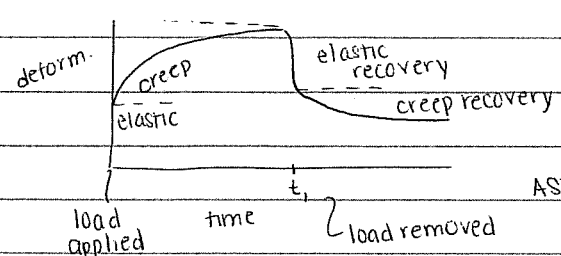 deform.
creep
elastic
elastic
recovery
creep recovery
t₁
AS
load
applied
time
load removed